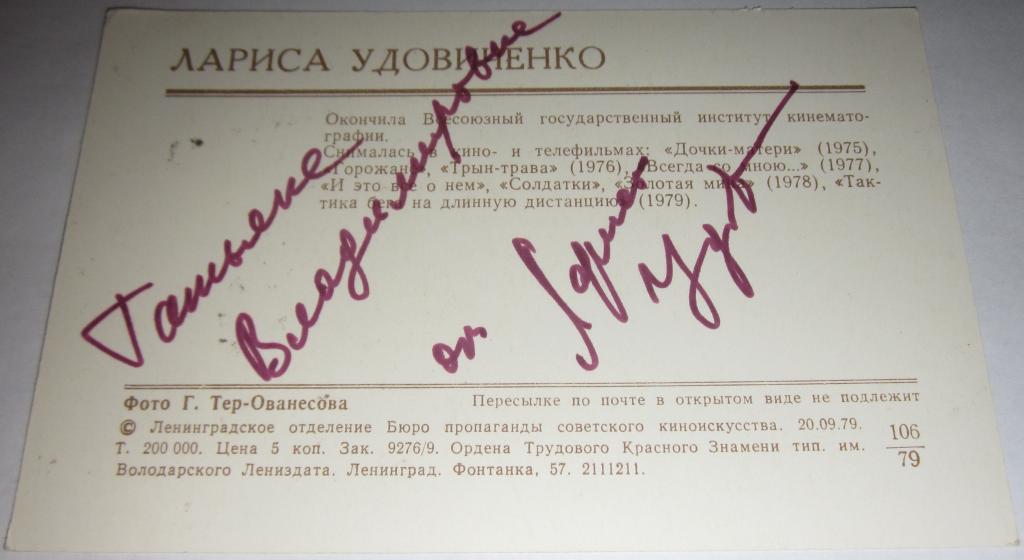 ЛАРИСА УДОВИЧЕНКО
Окончила Всесоюзный государственный институт кинемато-
графии.
Снималась в кино- и телефильмах: «Дочки-матери» (1975),
«Горожане», «Трын-трава» (1976), «Всегда со мною...» (1977),
«И это все о нем», «Солдатки», «Золотая мина» (1978), «Так-
тика бега на длинную дистанцию» (1979).
Татьяне
Владимировне
от
Фото Г. Тер-Ованесова
Пересылке по почте в открытом виде не подлежит
© Ленинградское отделение Бюро пропаганды советского киноискусства. 20.09.79.
Т. 200 000. Цена 5 коп. Зак. 9276/9. Ордена Трудового Красного Знамени тип. им.
Володарского Лениздата. Ленинград. Фонтанка, 57. 2111211.
106
79